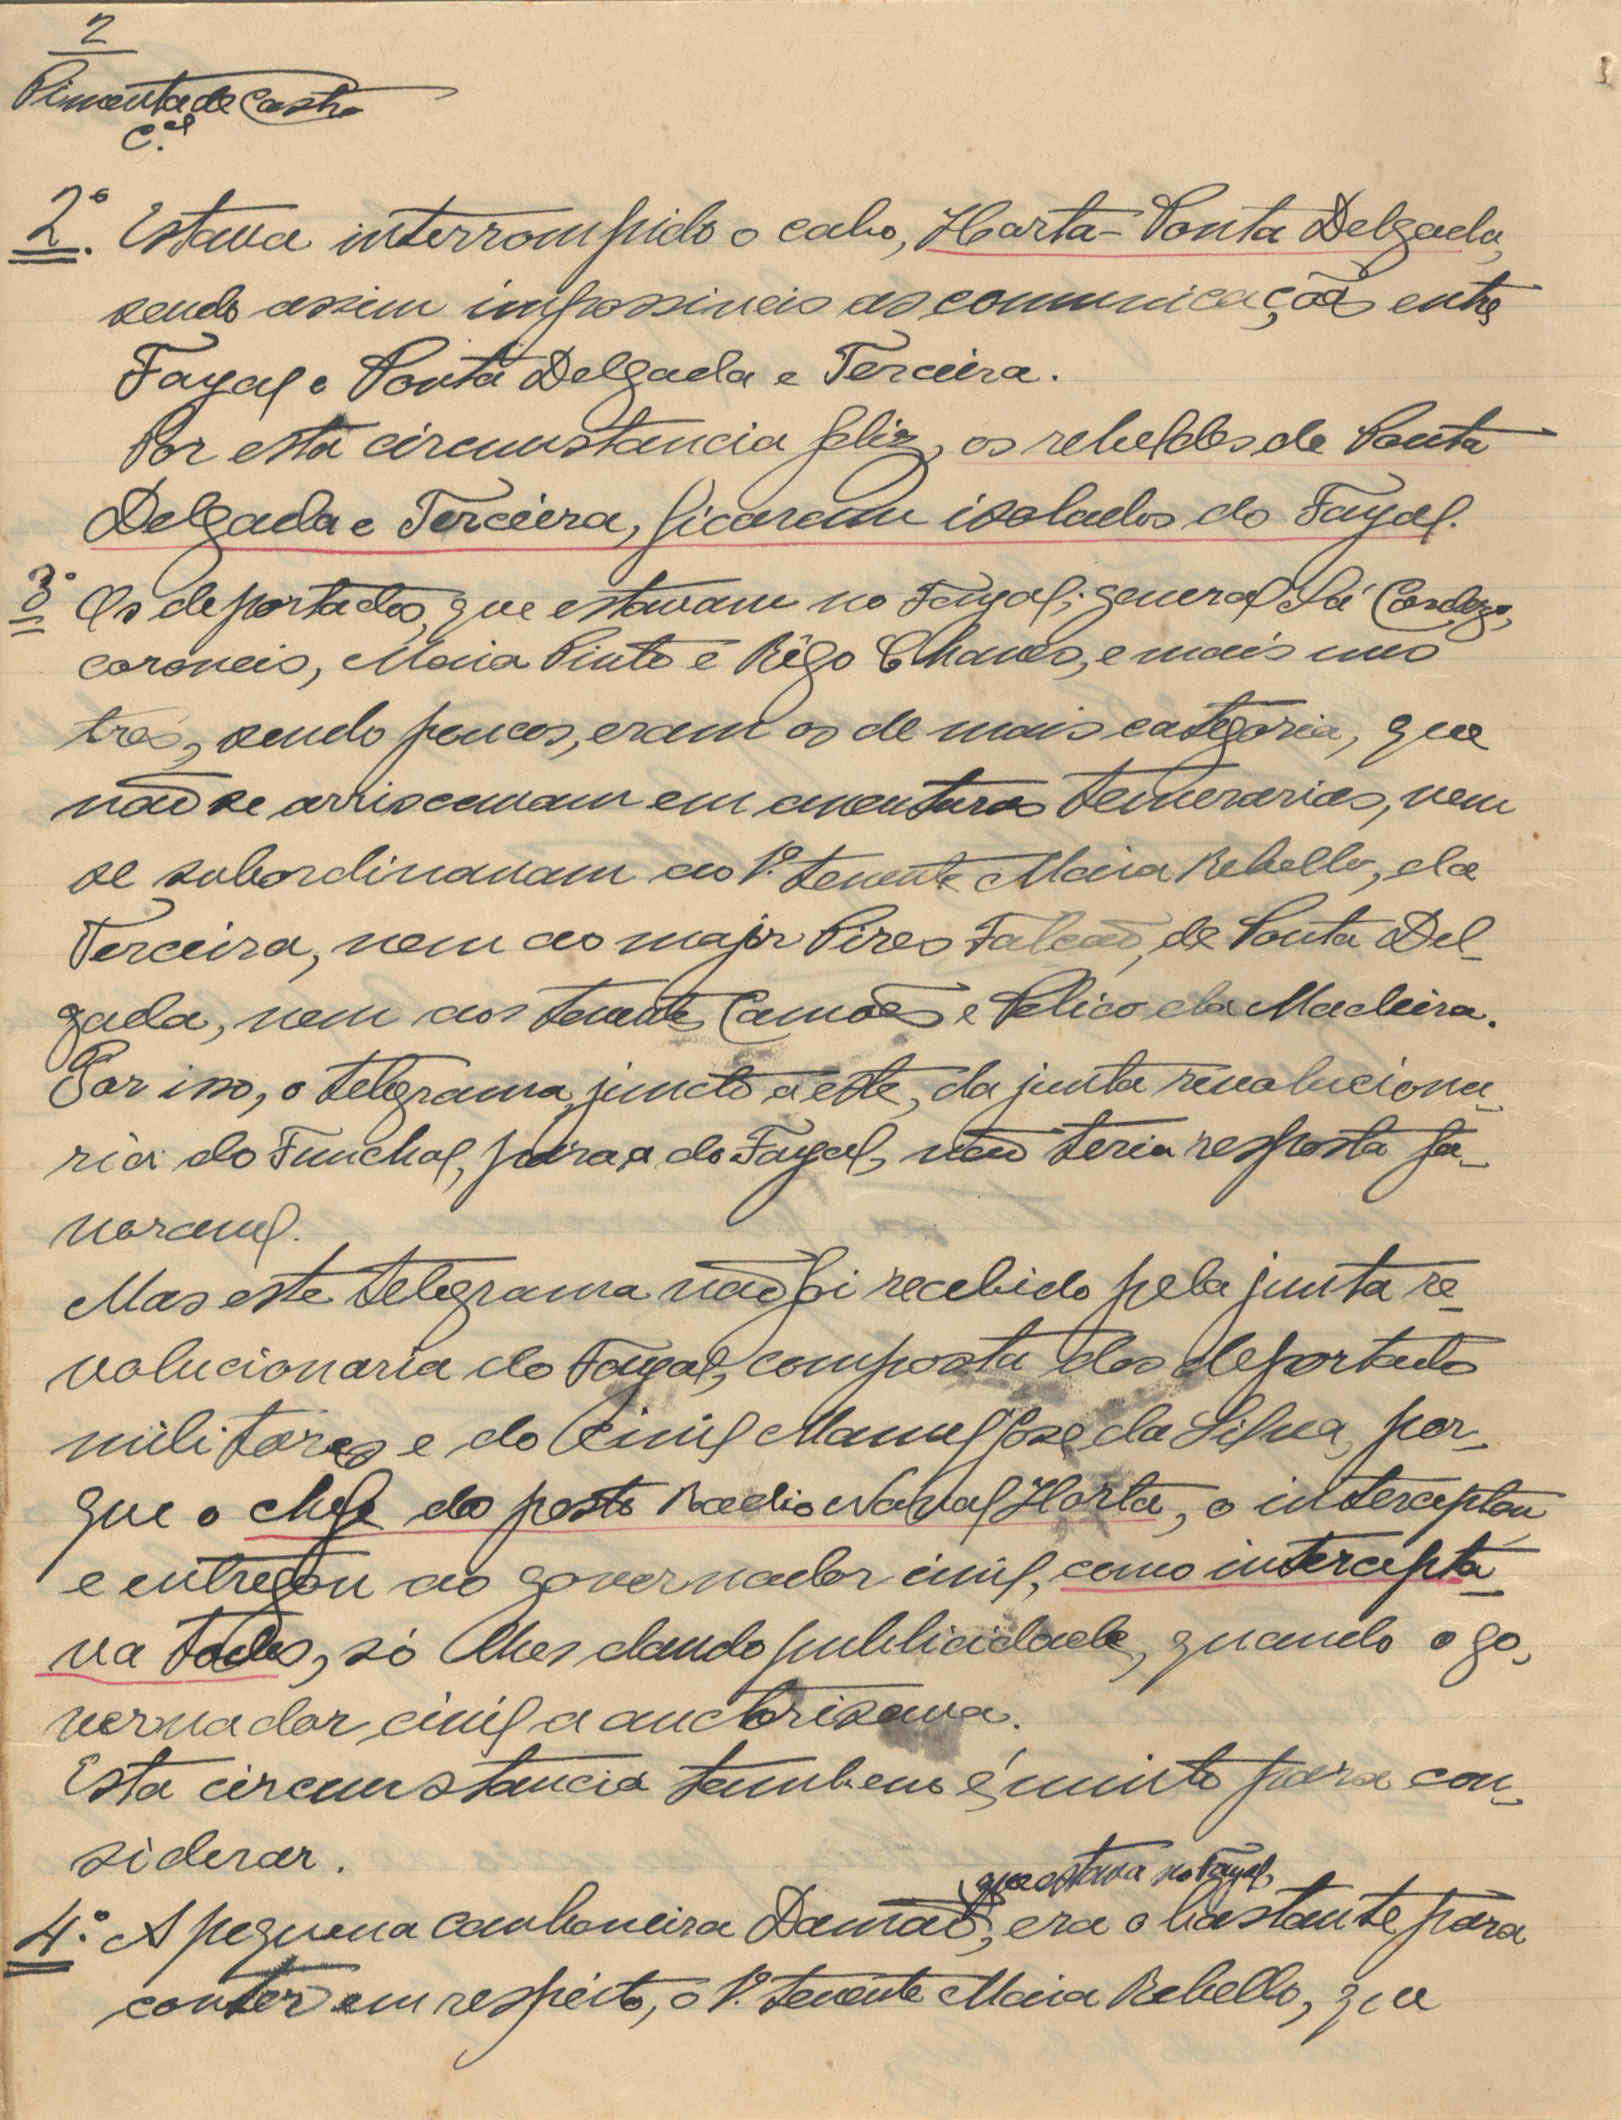 2
Pimenta de Castro
C.el
2º. Estava interrompido o cabo, Horta-Ponta Delgada,
sendo assim impossiveis as comunicações entre
Fayal e Ponta Delgada e Terceira.
Por esta circumstancia feliz, os rebeldes de Ponta
Delgada e Terceira, ficaram isolados do Fayal.
3º Os deportados, que estavam no Fayal; general Sá Cardozo,
coroneis, Maia Pinto e Rêgo Chaves, e mais uns
tres, sendo poucos, eram os de mais categoria, que
não se arriscavam em aventuras temerarias, nem
se subordinavam ao 1º. tenente Maia Rebello, da
Terceira, nem ao major Pires Falcão, de Ponta Del-
gada, nem aos tenente Camões e Pelico da Madeira.
Por isso, o telegrama, juncto a este, da junta revoluciona-
ria do Funchal, para a do Fayal, não teria resposta fa-
voravel.
Mas este telegrama não foi recebido pela junta re-
volucionaria do Fayal, composta dos deportados
militares e do civil Manuel José da Silva, por-
que o chefe do posto Radio Naval Horta, o interceptou
e entregou ao governador civil, como intercepta-
va todos, só lhes dando publicidade, quando o go-
vernador civil a auctorisava.
Esta circumstancia tambem é muito para con-
siderar.
que estava no Fayal,
4º. A pequena canhoneira Damão, era o bastante para
conter em respeito, o 1º. tenente Maia Rebello, que